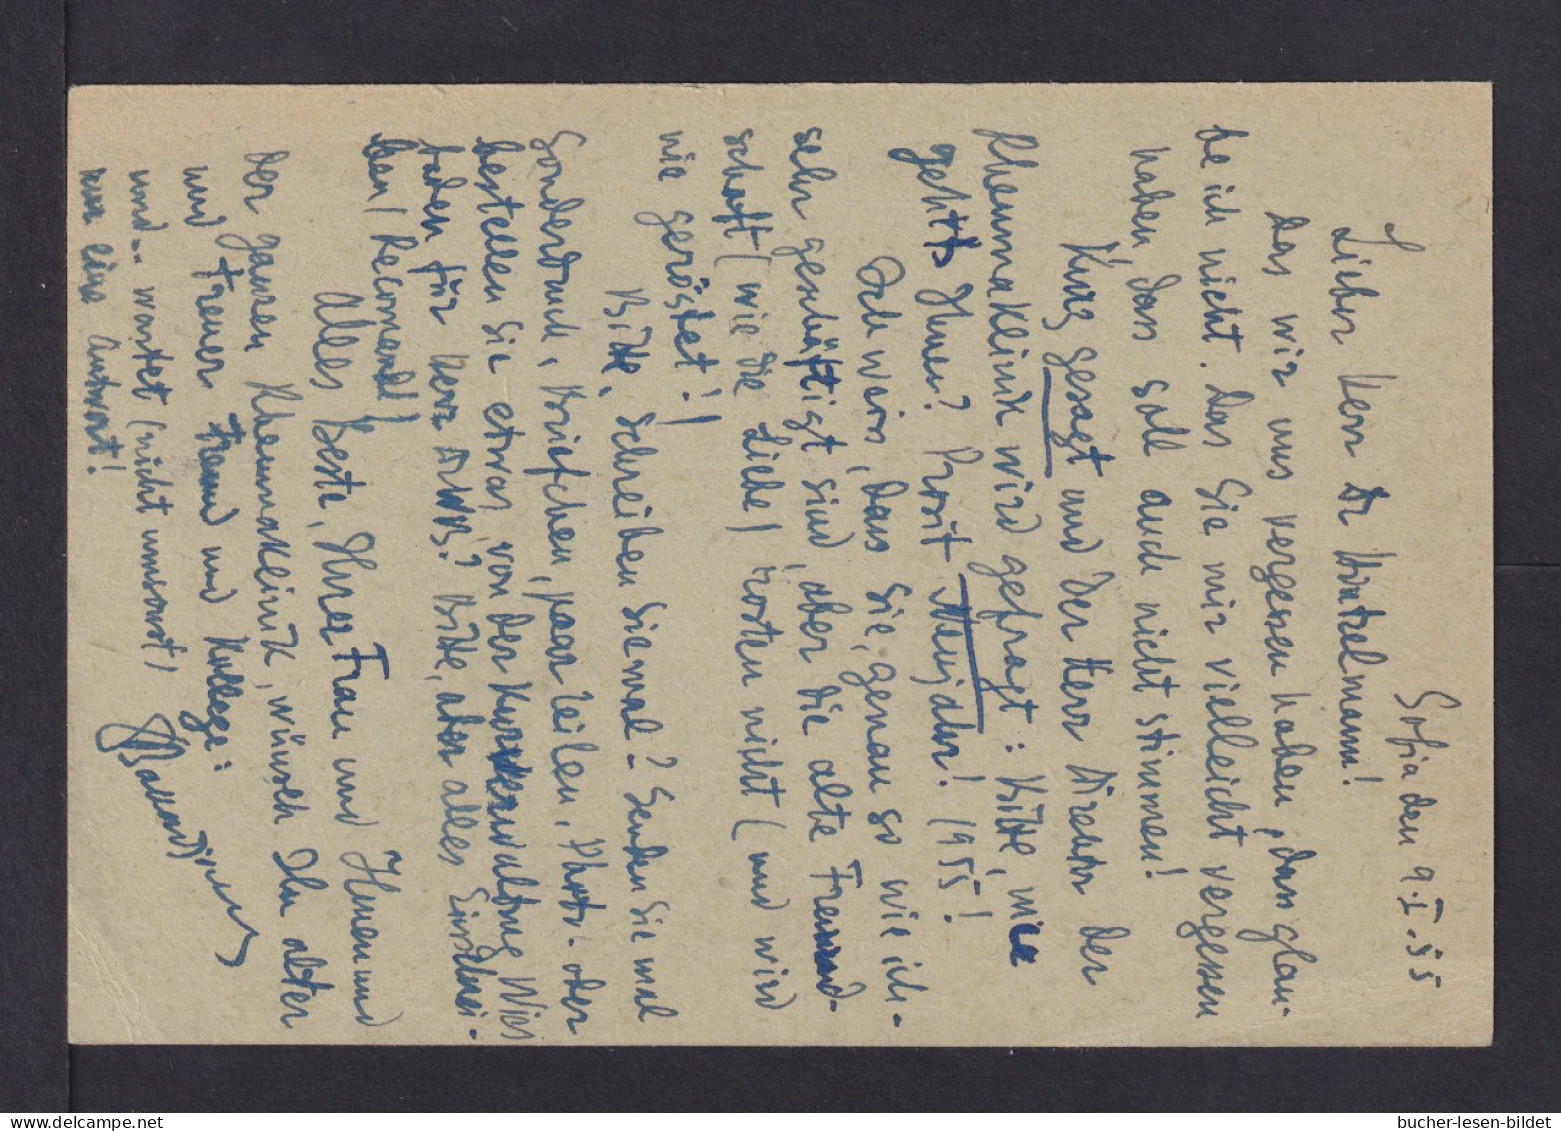 Sofia den 9.I.55
Lieber Herr Dr Winkelmann!
Das wir uns vergessen haben, dass glau-
be ich nicht. Das Sie mir vielleicht vergessen
haben, dass soll auch nicht stimmen!
Kurz gesagt und der Herr Direktor der
Rheumaklinik wird gefragt: Bitte, wie
gehts Ihnen? Prosit Neujahr! 1955!
Ich weiss, dass Sie, genau so wie ich -
sehr genhäftigt sind, aber die alte Freund-
schaft (wie die Liebe) rosten nicht (und wird
nie geröstet!)
Bitte, schreiben Sie mal - Senden Sie mal
Sonderdruck, Briefchen, paar Zeilen, Photo- oder
bestellen Sie etwas von der Kurverwaltung Wies
baden für Herr? Bitte, aber alles Einschrei-
ben (Recomand)!
Alles Beste, Ihrer Frau und Ihnen und
der ganzen Rheumaklinik, wünsch Ihn alter
und treuer Freund und Kollege:
und - wartet (nicht umsonst)
nur eine Antwort!
bucher-lesen-bildet
delcampe.net